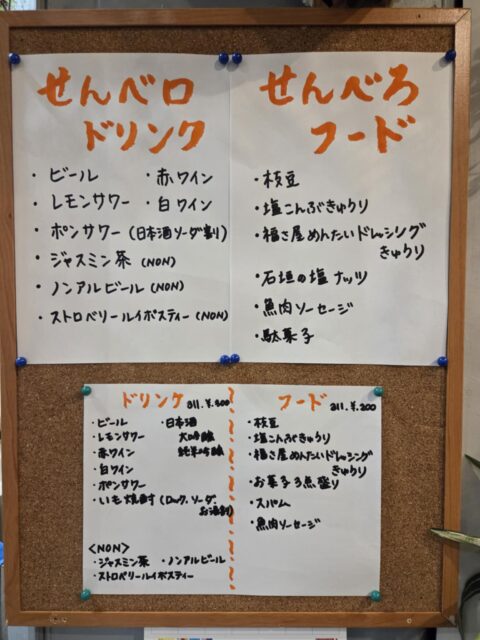 せんベロ
ドリンク
・ビール ・赤ワイン
・レモンサワー ・白ワイン
・ポンサワー(日本酒ソーダ割り)
・ジャスミン茶(NON)
・ノンアルビール(NON)
・ストロベリールイボスティー(NON)
せんべろ
フード
・枝豆
・塩こんぶきゅうり
・福さ屋めんたいドレッシング
きゅうり
・石垣の塩ナッツ
・魚肉ソーセージ
・駄菓子
ドリンク all.¥.300
・ビール ・日本酒
・レモンサワー 大吟醸
・赤ワイン 純米吟醸
・白ワイン
・ポンサワー
・いも焼酎(ロック、ソーダ、
お湯割)
<NON>
・ジャスミン茶 ・ノンアルビール
・ストロベリールイボスティー
フード all.¥.200
・枝豆
・塩こんぶきゅうり
・福さ屋めんたいドレッシング
きゅうり
・お菓子3点盛り
・スパム
・魚肉ソーセージ